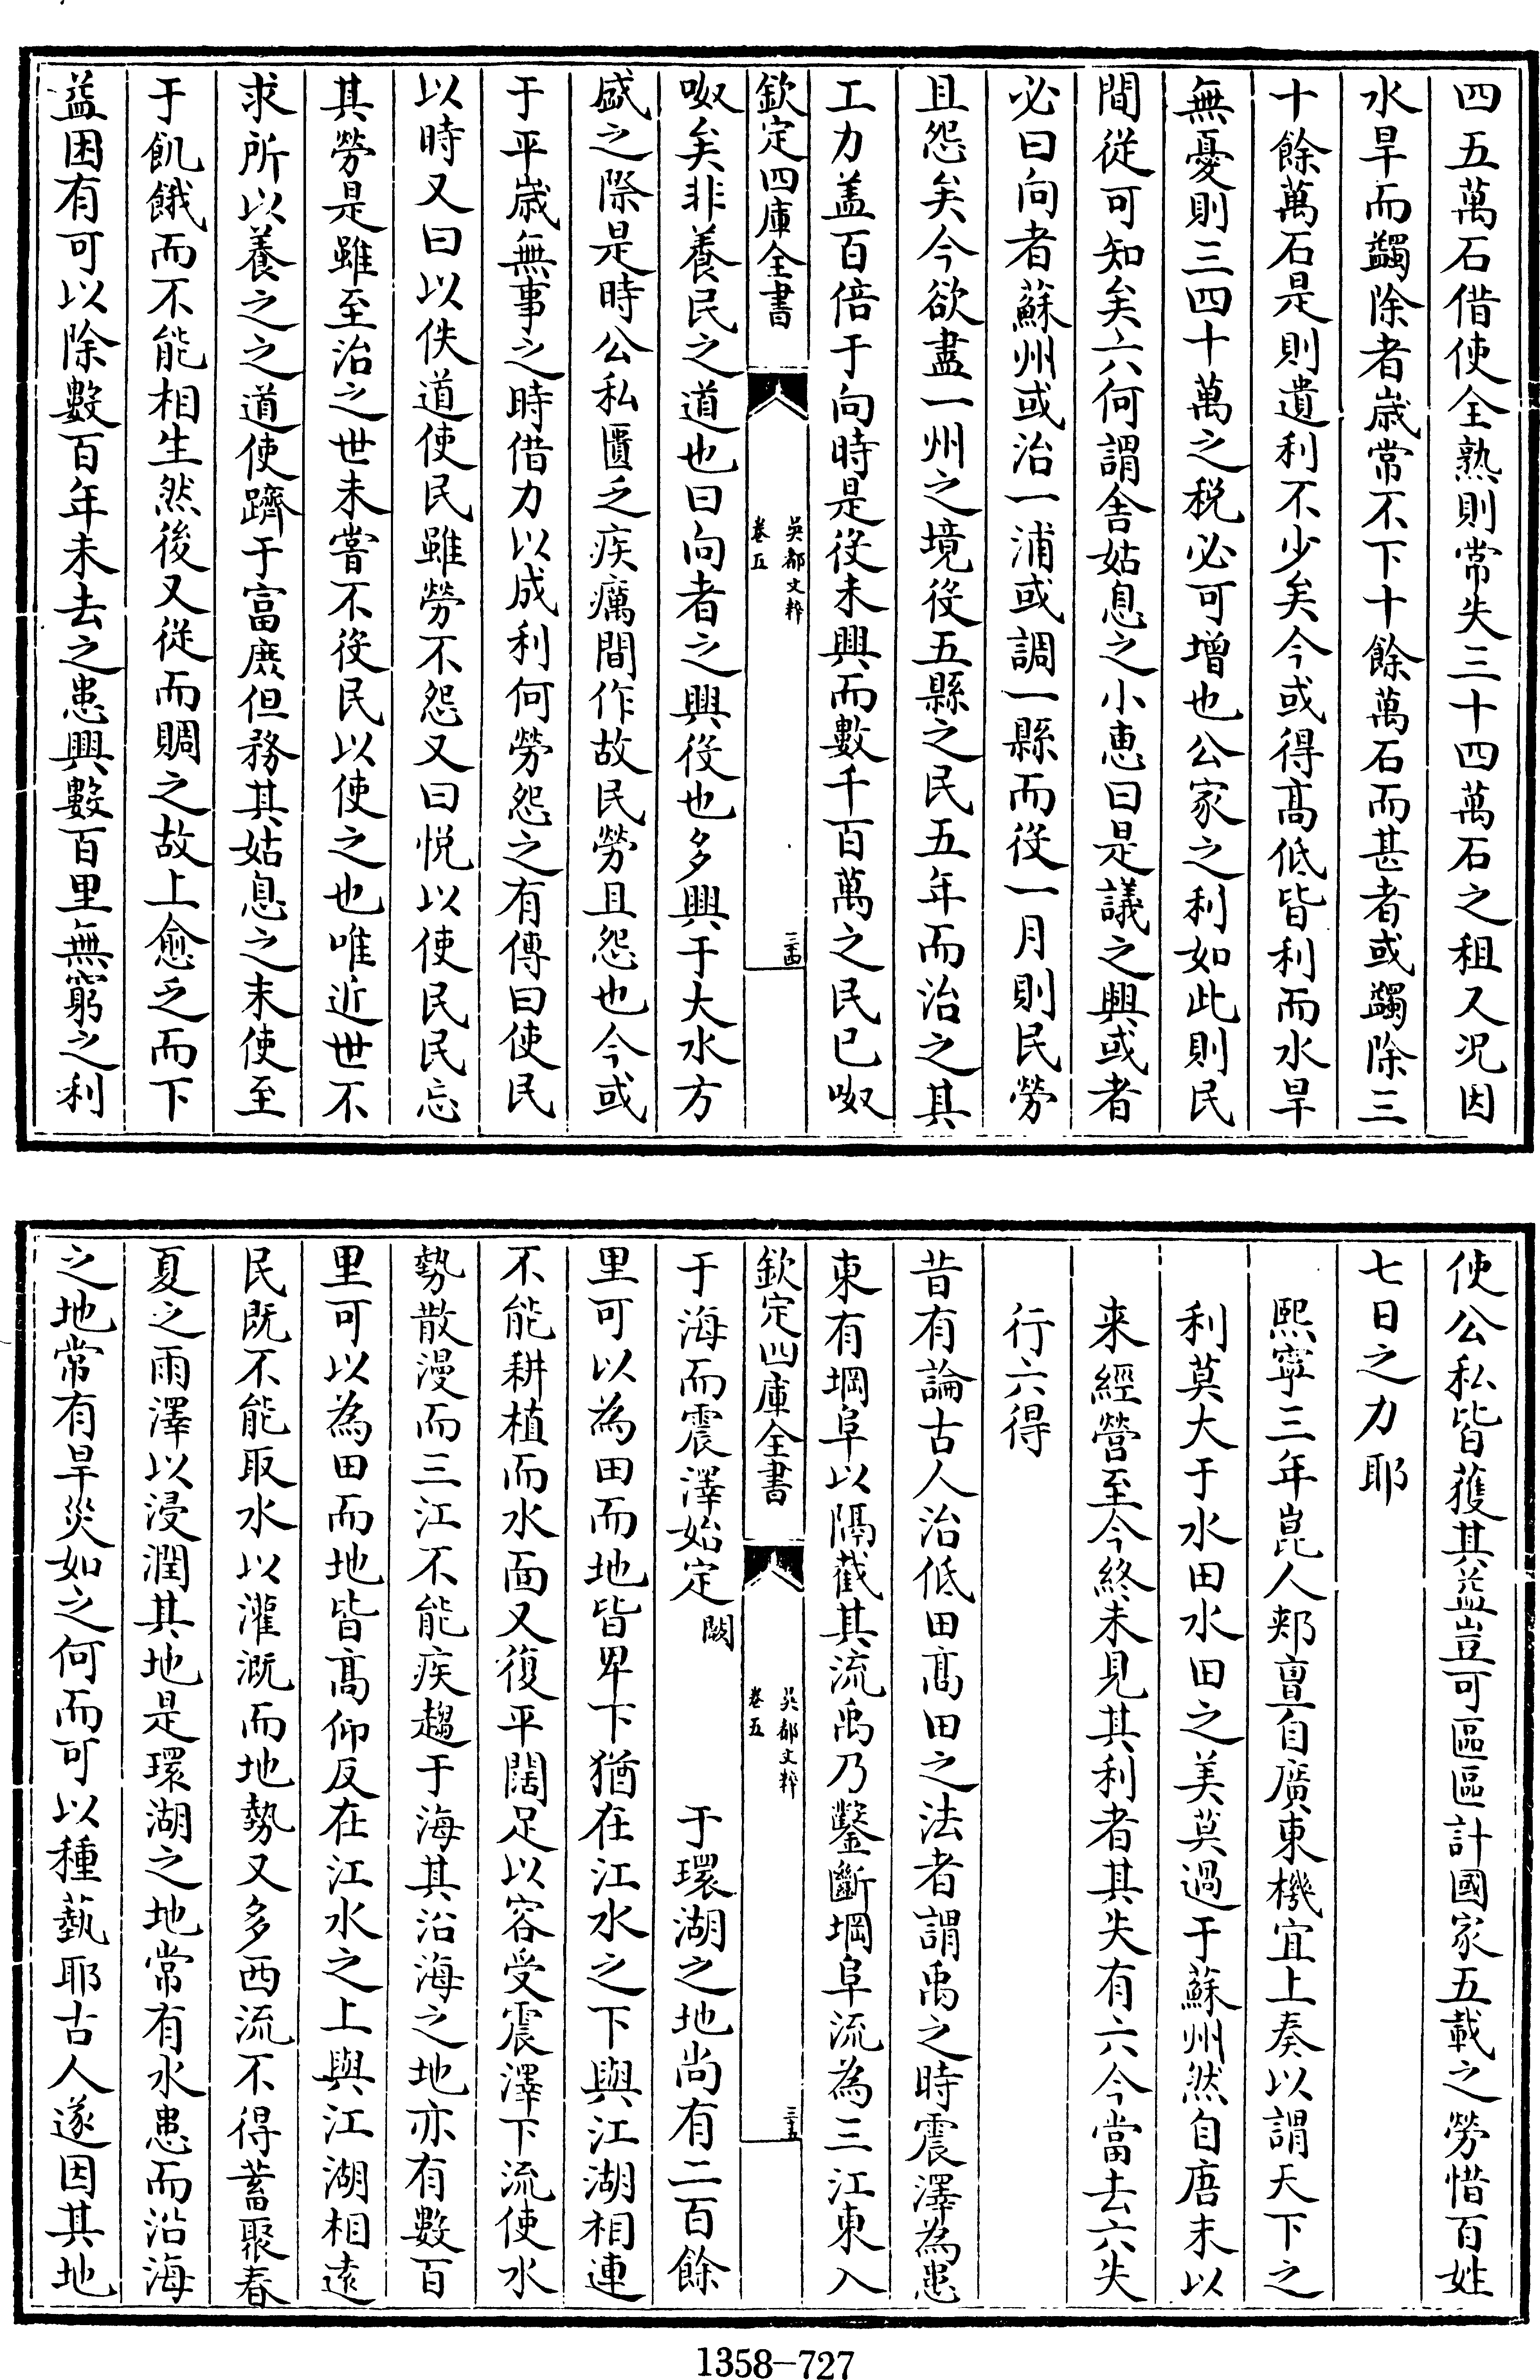 四五萬石借使全熟則常失三十四萬石之租又况因
水旱而蠲除者嵗常不下十餘萬石而甚者或蠲除三
十餘萬石是則遺利不少矣今或得髙低皆利而水旱
無憂則三四十萬之税必可增也公家之利如此則民
間從可知矣六何謂舍姑息之小恵曰是議之興或者
必曰向者蘇州或治一浦或調一縣而役一月則民勞
且怨矣今欲盡一州之境役五縣之民五年而治之其
工力盖百倍于向時是役未興而數千百萬之民已呶
欽定四庫全書
吳都文粹
卷五
三十四
呶矣非養民之道也曰向者之興役也多興于大水方
盛之際是時公私匱乏疾癘間作故民勞且怨也今或
于平嵗無事之時借力以成利何勞怨之有傳曰使民
以時又曰以佚道使民雖勞不怨又曰悅以使民民忘
其勞是雖至治之世未嘗不役民以使之也唯近世不
求所以養之之道使躋于富庶但務其姑息之末使至
于飢餓而不能相生然後又從而賙之故上愈乏而下
益困有可以除數百年未去之患興數百里無窮之利
使公私皆獲其益豈可區區計國家五載之勞惜百姓
七日之力耶
熙寧三年崑人郟亶自廣東機宜上奏以謂天下之
利莫大于水田水田之美莫過于蘇州然自唐末以
来經營至今終未見其利者其失有六今當去六失
行六得
昔有論古人治低田髙田之法者謂禹之時震澤為患
東有堈阜以隔截其流禹乃鑿斷堈阜流為三江東入
欽定四庫全書
吳都文粹
卷五
三十五
于海而震澤始定闕 于環湖之地尚有二百餘
里可以為田而地皆卑下猶在江水之下與江湖相連
不能耕植而水面又復平闊足以容受震澤下流使水
勢散漫而三江不能疾趨于海其沿海之地亦有數百
里可以為田而地皆髙仰反在江水之上與江湖相逺
民既不能取水以灌溉而地勢又多西流不得蓄聚春
夏之雨澤以浸潤其地是環湖之地常有水患而沿海
之地常有旱災如之何而可以種藝耶古人遂因其地
1358-727